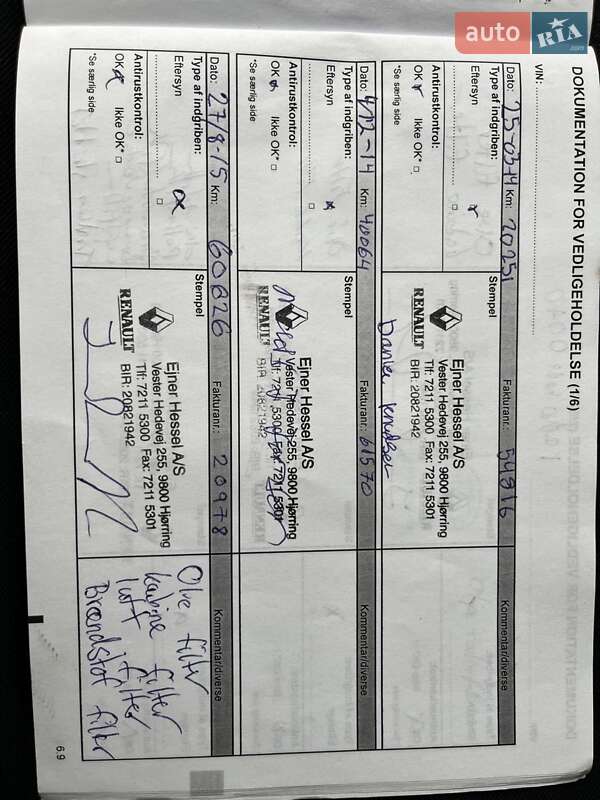 auto RIA.com
DOKUMENTATION FOR VEDLIGEHOLDELSE (1/6)
VIN:
Dato: 25-03-14 Km: 20251 Fakturanr.: 54816 Kommentar/diverse
Type af indgriben: Stempel
Eftersyn
Antirustkontrol:
OK Ikke OK*
*Se særlig side
RENAULT
Ejner Hessel A/S
Vester Hedevej 255, 9800 Hjørring
Tlf: 7211 5300 Fax: 7211 5301
BIR: 20821942
Dato: 4/12-14 Km: 40064 Fakturanr.: 61570 Kommentar/diverse
Type af indgriben: Stempel
Eftersyn
Antirustkontrol:
OK Ikke OK*
*Se særlig side
RENAULT
Ejner Hessel A/S
Vester Hedevej 255, 9800 Hjørring
Tlf: 7211 5300 Fax: 7211 5301
BIR: 20821942
Dato: 27/8-15 Km: 60826 Fakturanr.: 20978 Kommentar/diverse
Type af indgriben: Stempel
Eftersyn
Antirustkontrol:
OK Ikke OK*
*Se særlig side
RENAULT
Ejner Hessel A/S
Vester Hedevej 255, 9800 Hjørring
Tlf: 7211 5300 Fax: 7211 5301
BIR: 20821942
Olie filter
kabine filter
luft filter
Brændstof filter
6.9